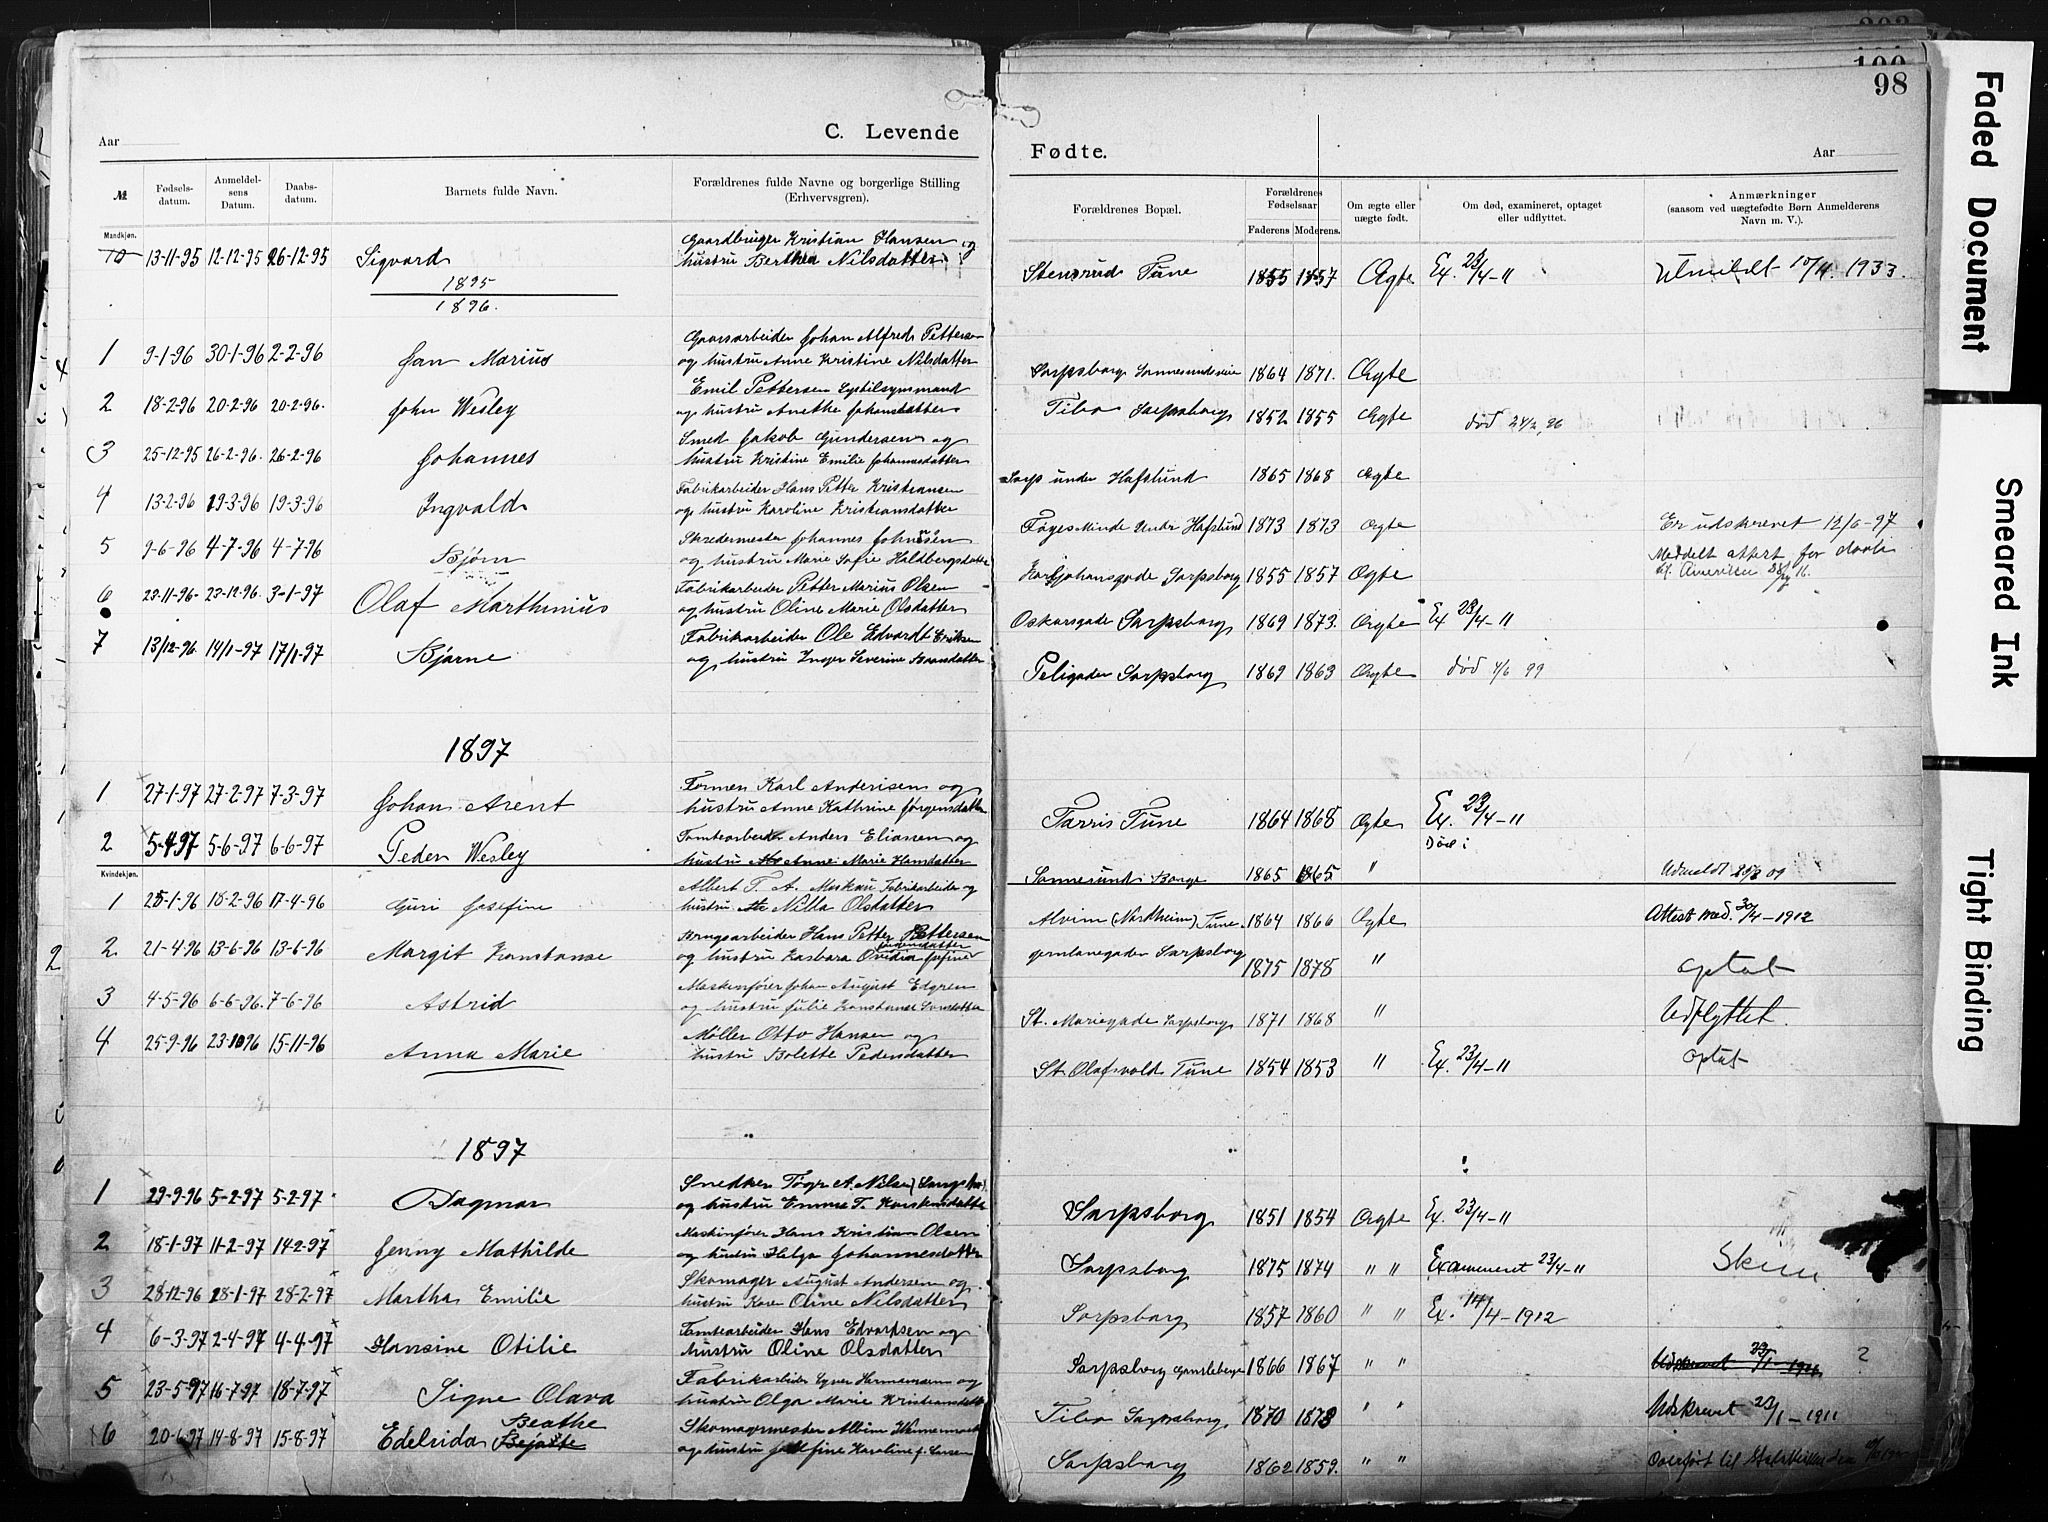 98
C. Levende
Fødte.
Aar
Aar
№
Fødsels-
datum.
Anmeldel-
sens
Datum.
Daabs-
datum.
Barnets fulde Navn.
Forældrenes fulde Navne og borgerlige Stilling
(Erhvervsgren).
Forældrenes Bopæl.
Forældrenes
Fødselsaar
Faderens
Moderens.
Om ægte eller
uægte født.
Om død, examineret, optaget
eller udflyttet.
Anmærkninger
(saasom ved uægtefødte Børn Anmelderens
Navn m. V.).
Mandkjøn.
10 13-11-95 12-12-95 26-12-95 Sigvard
Gaardbruger Kristian Hansen og
hustru Berthea Nilsdatter
Stensrud Tune 1855 1857 Ægte Ex. 23/4-11 Utmeldt 10/4. 1933.
1895
1896.
1 9-1-96 30-1-96 2-2-96 Jan Marius
Johan Alfred Pettersen
og hustru Anne Kristine Nilsdatter
Sarpsborg Sannesundsveien 1864 1871. Ægte
2 18-2-96 20-2-96 20-2-96. John Wesley
Emil Pettersen
og hustru Anethe
Sarpsborg 1852 1855 Ægte død 24/2, 96
3 25-12-95 26-2-96. 26-2-96 Johannes
Smed Jakob Gundersen og
hustru Kristine Emilie Johannesdatter
Sarp under Hafslund 1865 1868 Ægte
4 13-2-96 19-3-96 19-3-96 Ingvald
Fabrikarbeider Hans Petter Kristiansen
og hustru Karoline Kristiansdatter
Føyes Minde under Hafslund 1873 1873 Ægte Er udskrevet 12/6-97
5 9-6-96 4-7-96 4-7-96 Bjørn
Skredermester Johannes Johnsen
og hustru Marie Sofie Haldbergsdatter
Karljohansgade Sarpsborg 1855 1857 Ægte Meddelt attest for daab
til Amerika
6 23-11-96 23-12-96 3-1-97 Olaf Marthinius
Fabrikarbeider Petter Marius Olsen
og hustru Oline Marie Olsdatter
Oskarsgade Sarpsborg 1869 1873. Ægte Ex 23/4-11
7 13/12-96 14/1-97 17/1-97 Bjarne
Fabrikarbeider Ole Edvardt Eriksen
og hustru Inger Severine
Peligaden Sarpsborg 1869 1863 Ægte død 4/6 99
1897
1 27-1-97 27-2-97 7-3-97 Johan Arent
Formen Karl Andersen og
hustru Anne Kathrine Jørgensdatter
Tarris Tune 1864 1868 Ægte Ex. 23/4-11
2 5-4-97 5-6-97 6-6-97 Peder Wesley
Tomtearbeider Anders Eliassen og
hustru Anne Marie Hansdatter
Død i
Sannesund Borge 1865 1865 " Udmeldt
Kvindekjøn.
1 25-1-96 18-2-96 17-4-96 Guri Josefine
Albert T. A. Moskau Fabrikarbeider og
hustru Nilla Olsdatter
Alvim (Nordheim) Tune. 1864 1866 Ægte Attest med. 30/4-1912
2 21-4-96 13-6-96 13-6-96 Margit Konstanse
Brugsarbeider Hans Petter Pettersen
og hustru Barbara Ovidia Josefine
Jernbanegaden Sarpsborg 1875 1878 " optat
3 4-5-96 6-6-96. 7-6-96 Astrid
Maskinfører Johan August Edgren
og hustru Julie Konstanse
St. Mariegade Sarpsborg 1871 1868 " Udflyttet.
4 25-9-96 23-10 96 15-11-96 Anna Marie
Møller Otto Hansen og
hustru Bolette Pedersdatter
St. Olafsvold Tune 1854 1853 " Ex. 23/4-11 optat
1897
1 29-9-96 5-2-97 5-2-97 Dagmar
Snedker A. Nilsen
og hustru Emma T.
Sarpsborg 1851 1854 Ægte Ex. 23/4-11
2 18-1-97 11-2-97 14-2-97 Jenny Mathilde
Maskinfører Hans Kristian Olsen
og hustru Helga Johannesdatter
Sarpsborg 1875 1874 " " Examineret 23/4-11
3 28-12-96 28-1-97 28-2-97 Martha Emilie
Skomager August Andersen og
hustru Karen Oline Nilsdatter
Sarpsborg 1857 1860 " " Ex. 14/4-1912
4 6-3-97 2-4-97 4-4-97 Hansine Otilie
Tomtearbeider Hans Edvardsen og
hustru Oline Olsdatter
Sarpsborg 1866 1867 " " Udskrevet 23/1-1911 ?
5 23-5-97 16-7-97 18-7-97 Signe Olava
Fabrikarbeider Hermansen og
hustru Olga Marie Kristiansdatter
Sarpsborg 1870 1873 " " Udskrevet 23/1-1911
6 20-6-97 14-8-97 15-8-97 Edelrida Beathe Bejatte
Skomagermester Albin
og hustru Josefine Karoline f. Larsen
Sarpsborg 1862 1859. " " Overført til
Faded Document
Smeared Ink
Tight Binding